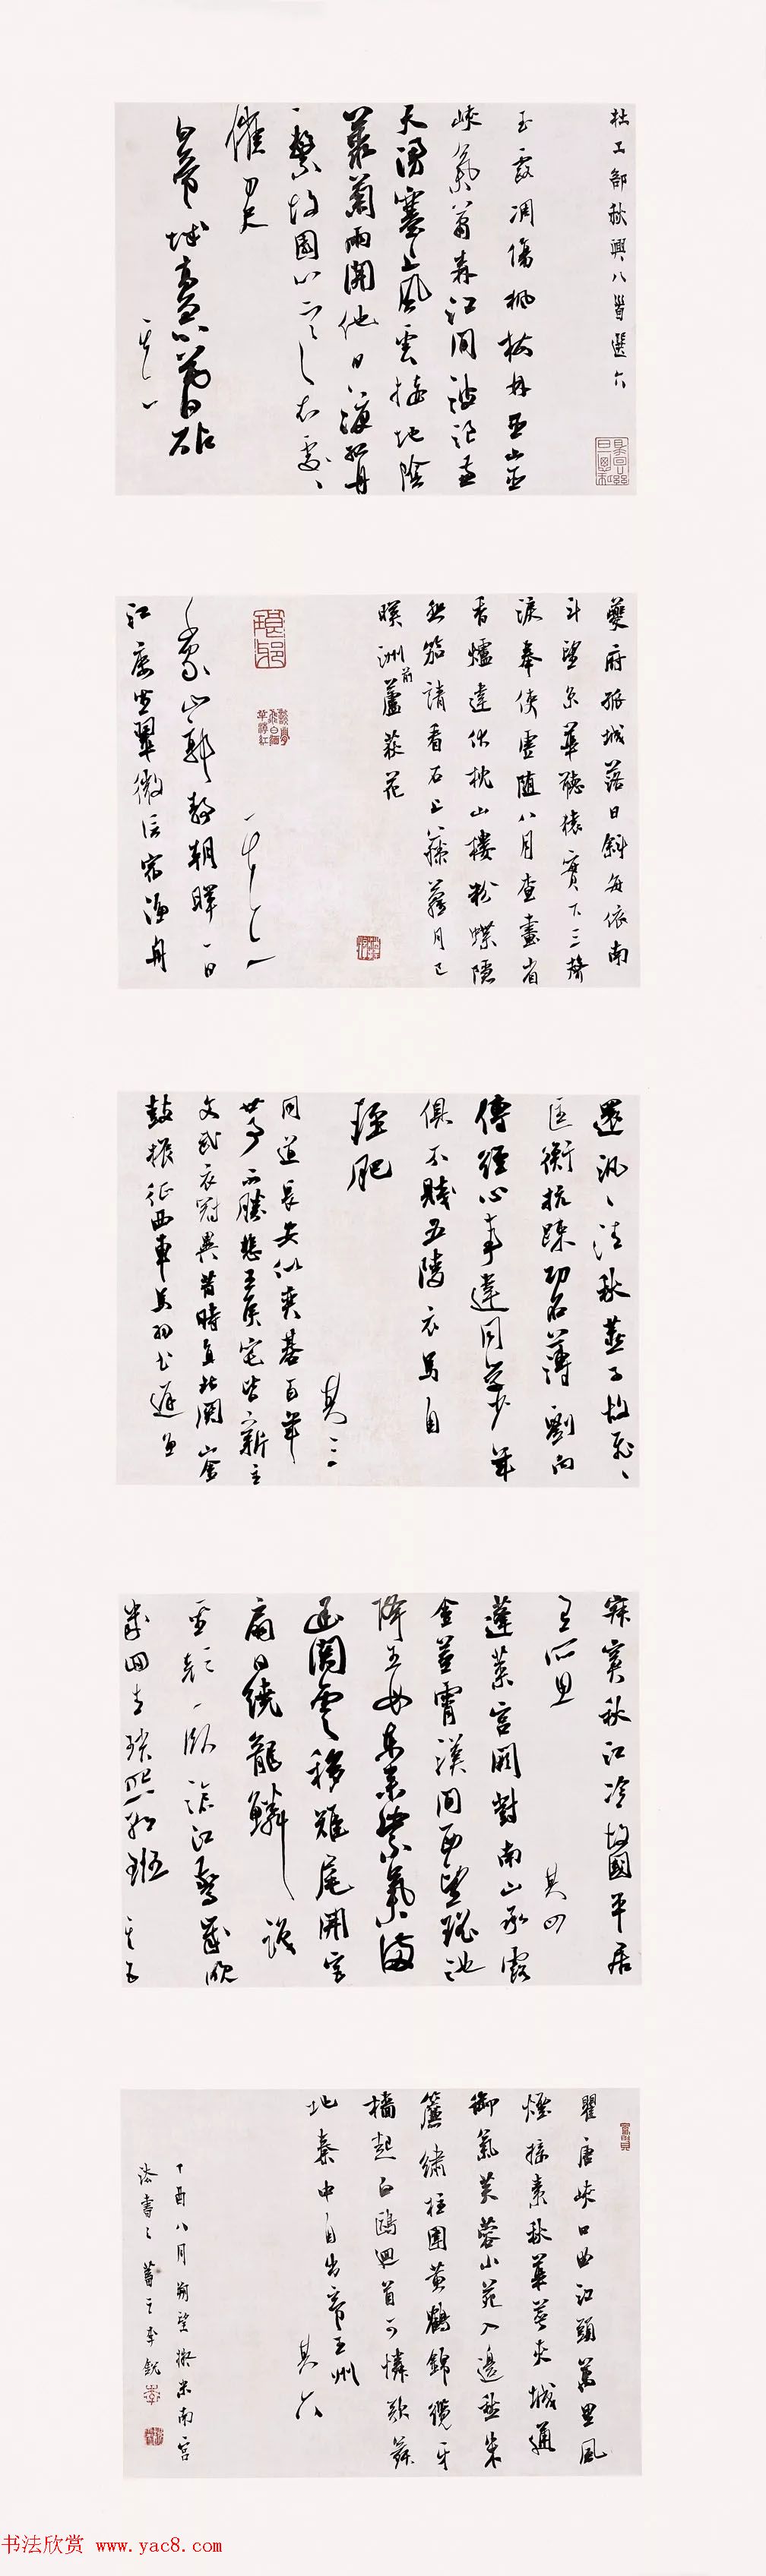 杜工部秋興八首選六
玉露凋傷楓樹林巫山巫
峽氣蕭森江間波浪兼
天湧塞上風雲接地陰
叢菊兩開他日淚孤舟
一繫故園心寒衣處處
催刀尺
白帝城高急暮砧
其一
夔府孤城落日斜每依南
斗望京華聽猿實下三聲
淚奉使虛隨八月查畫省
香爐違伏枕山樓粉蝶隱
悲笳請看石上藤蘿月已
映洲前蘆荻花
其二
千家山郭靜朝暉一日
江樓坐翠微信宿漁舟
還汎汎清秋燕子故飛飛
匡衡抗疏功名薄劉向
傳經心事違同學少年
俱不賤五陵衣馬自
輕肥
其三
聞道長安似奕棊百年
世事不勝悲王侯宅皆新主
文武衣冠異昔時直北關山金
鼓振征西車馬羽書遲魚
龍
寂寞秋江冷故國平居
有所思
其四
蓬萊宮闕對南山承露
金莖霄漢間西望瑤池
降王母東來紫氣滿
函關雲移雉尾開宮
扇日繞龍鱗識
聖顏一臥滄江驚歲晚
幾回青瑣照朝班其五
瞿唐峽口曲江頭萬里風
煙接素秋華萼夾城通
御氣芙蓉小苑入邊愁朱
簾繡柱圍黃鶴錦纜牙
檣起白鷗迴首可憐歌舞
地秦中自古帝王州
其六
丁酉八月朔望擬米南宮
法書之
書法欣賞 www.yac8.com